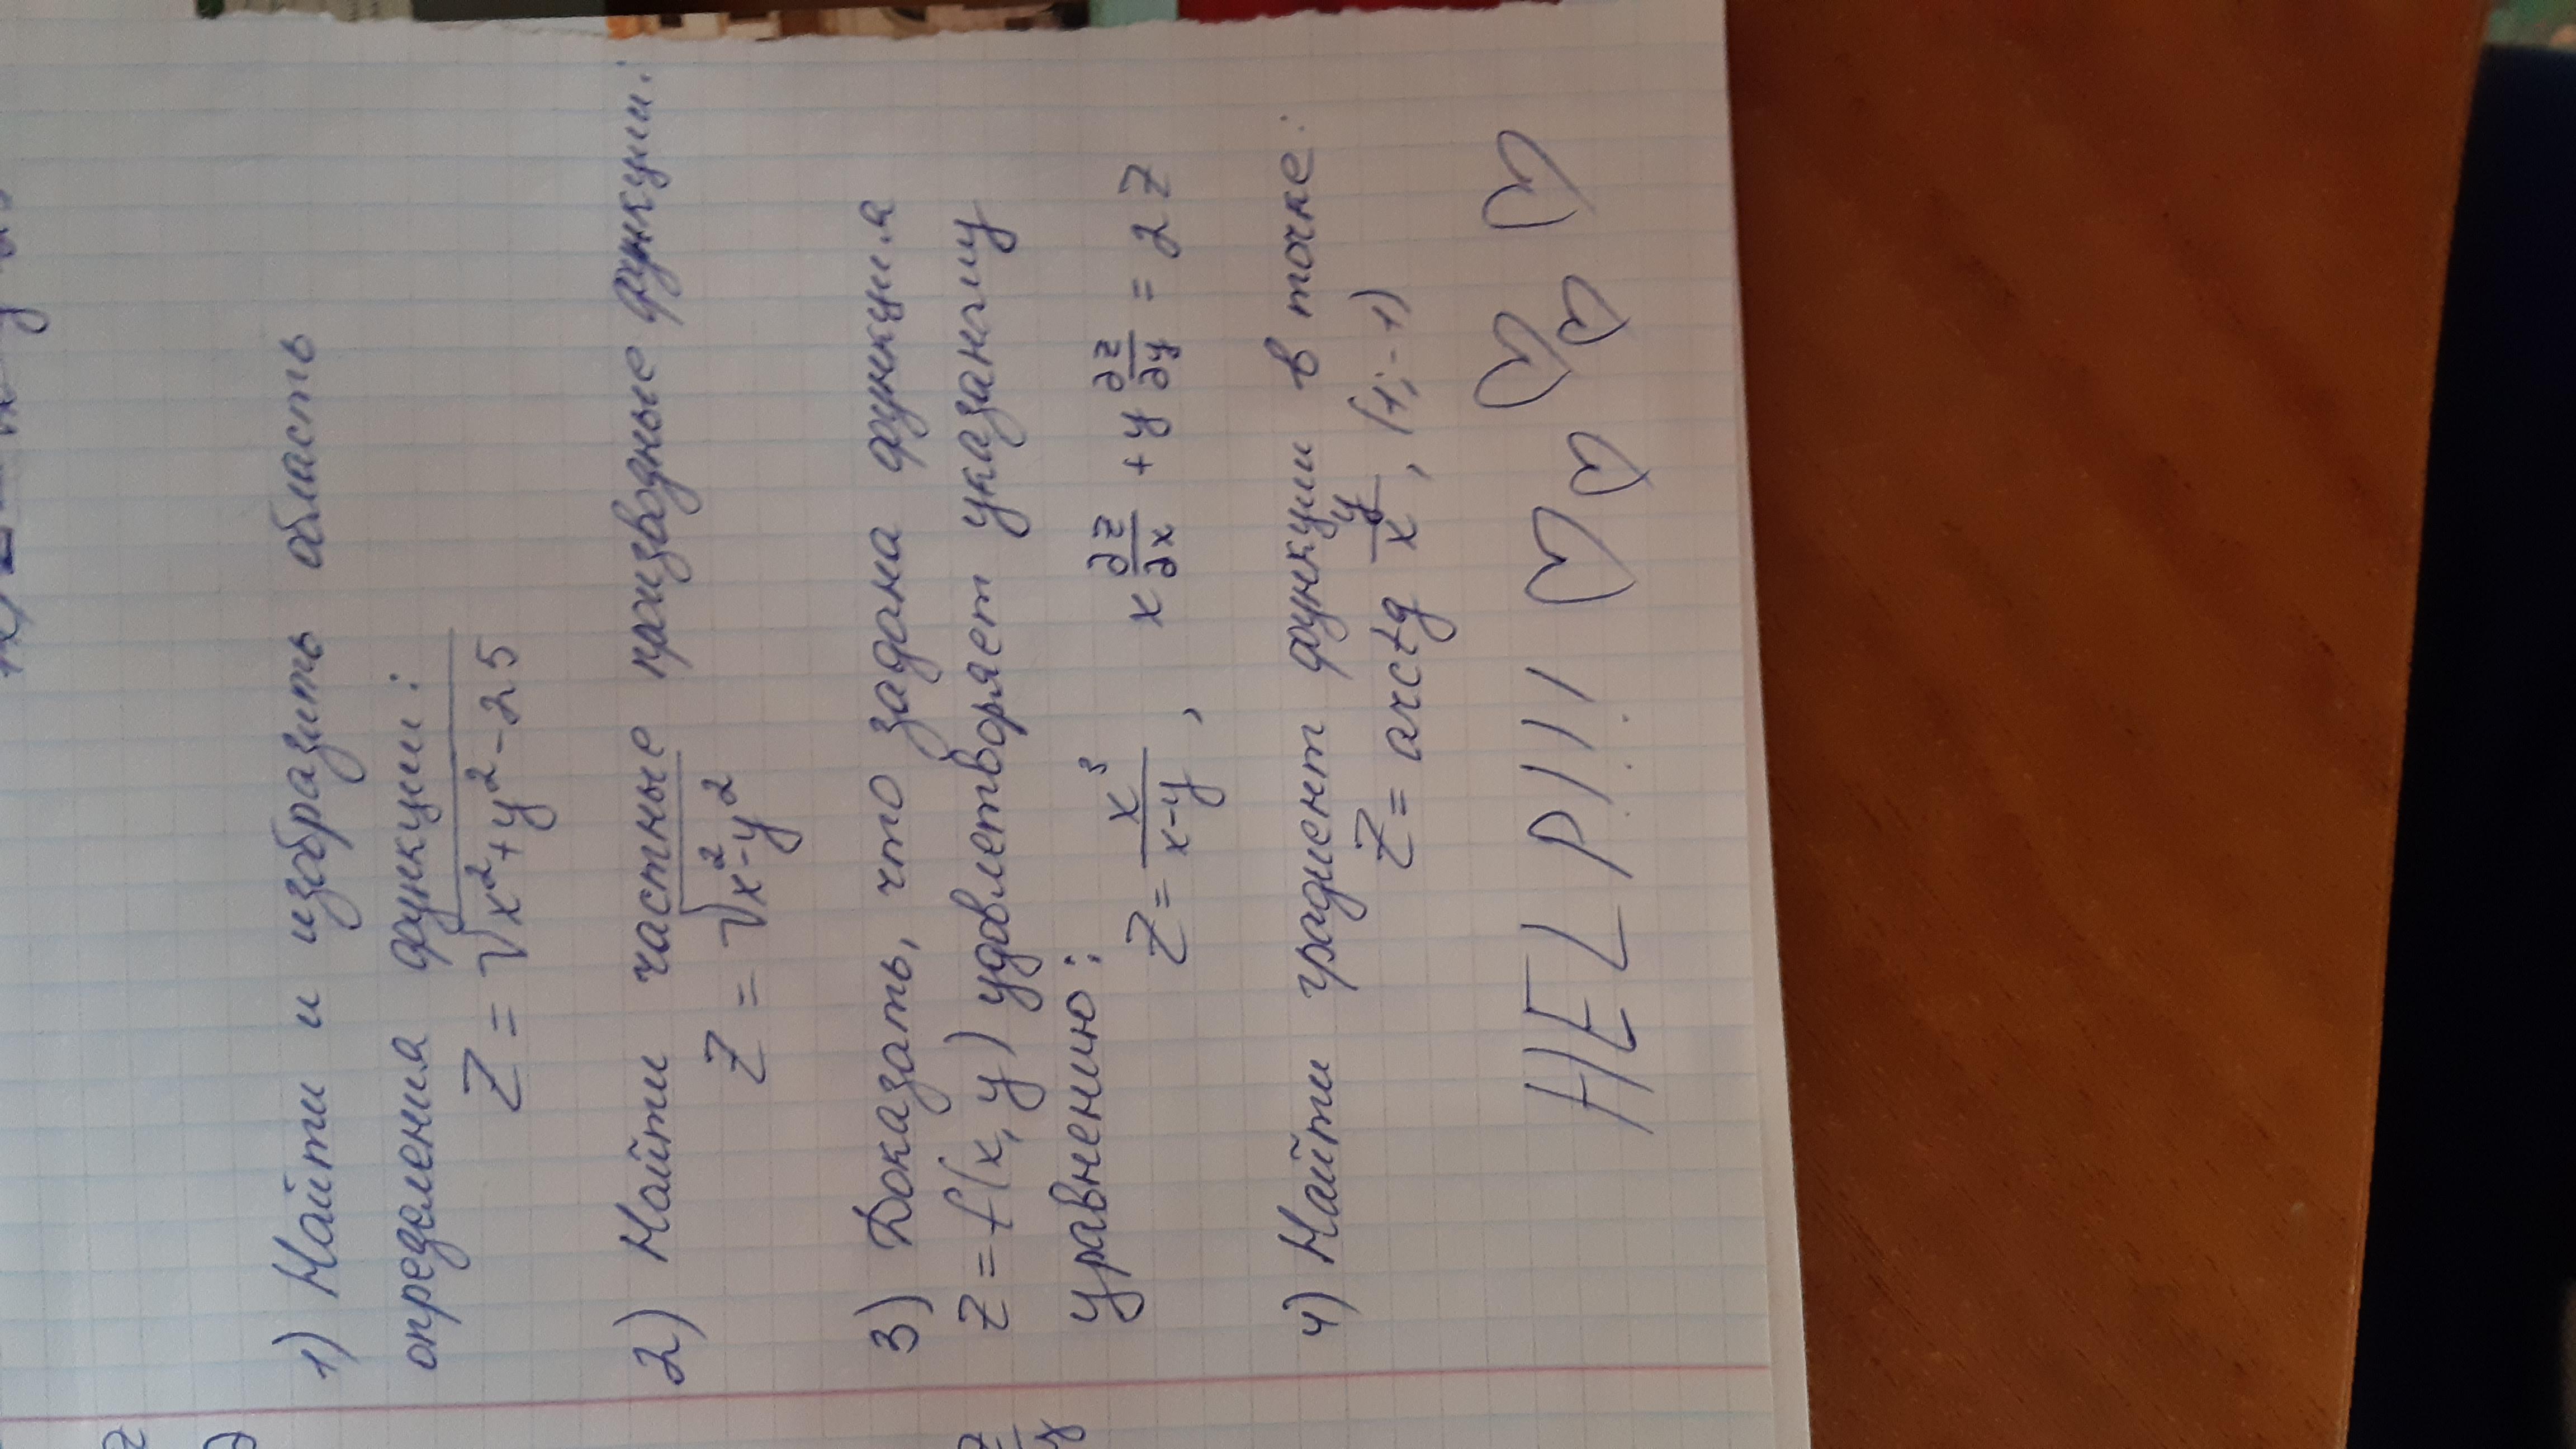 1) Найти и изобразить область
определения функции:
Z = √x²+y²-25
2) Найти частные производные функции:
Z = √x²-y²
3) Доказать, что задана функция
z = f(x,y) удовлетворяет указанному
уравнению:
Z = x³/x-y, x ∂z/∂x + y ∂z/∂y = 2Z
4) Найти градиент функции в точке:
Z = arctg y/x, (1;-1)
HELP!!! ♡♡♡♡♡